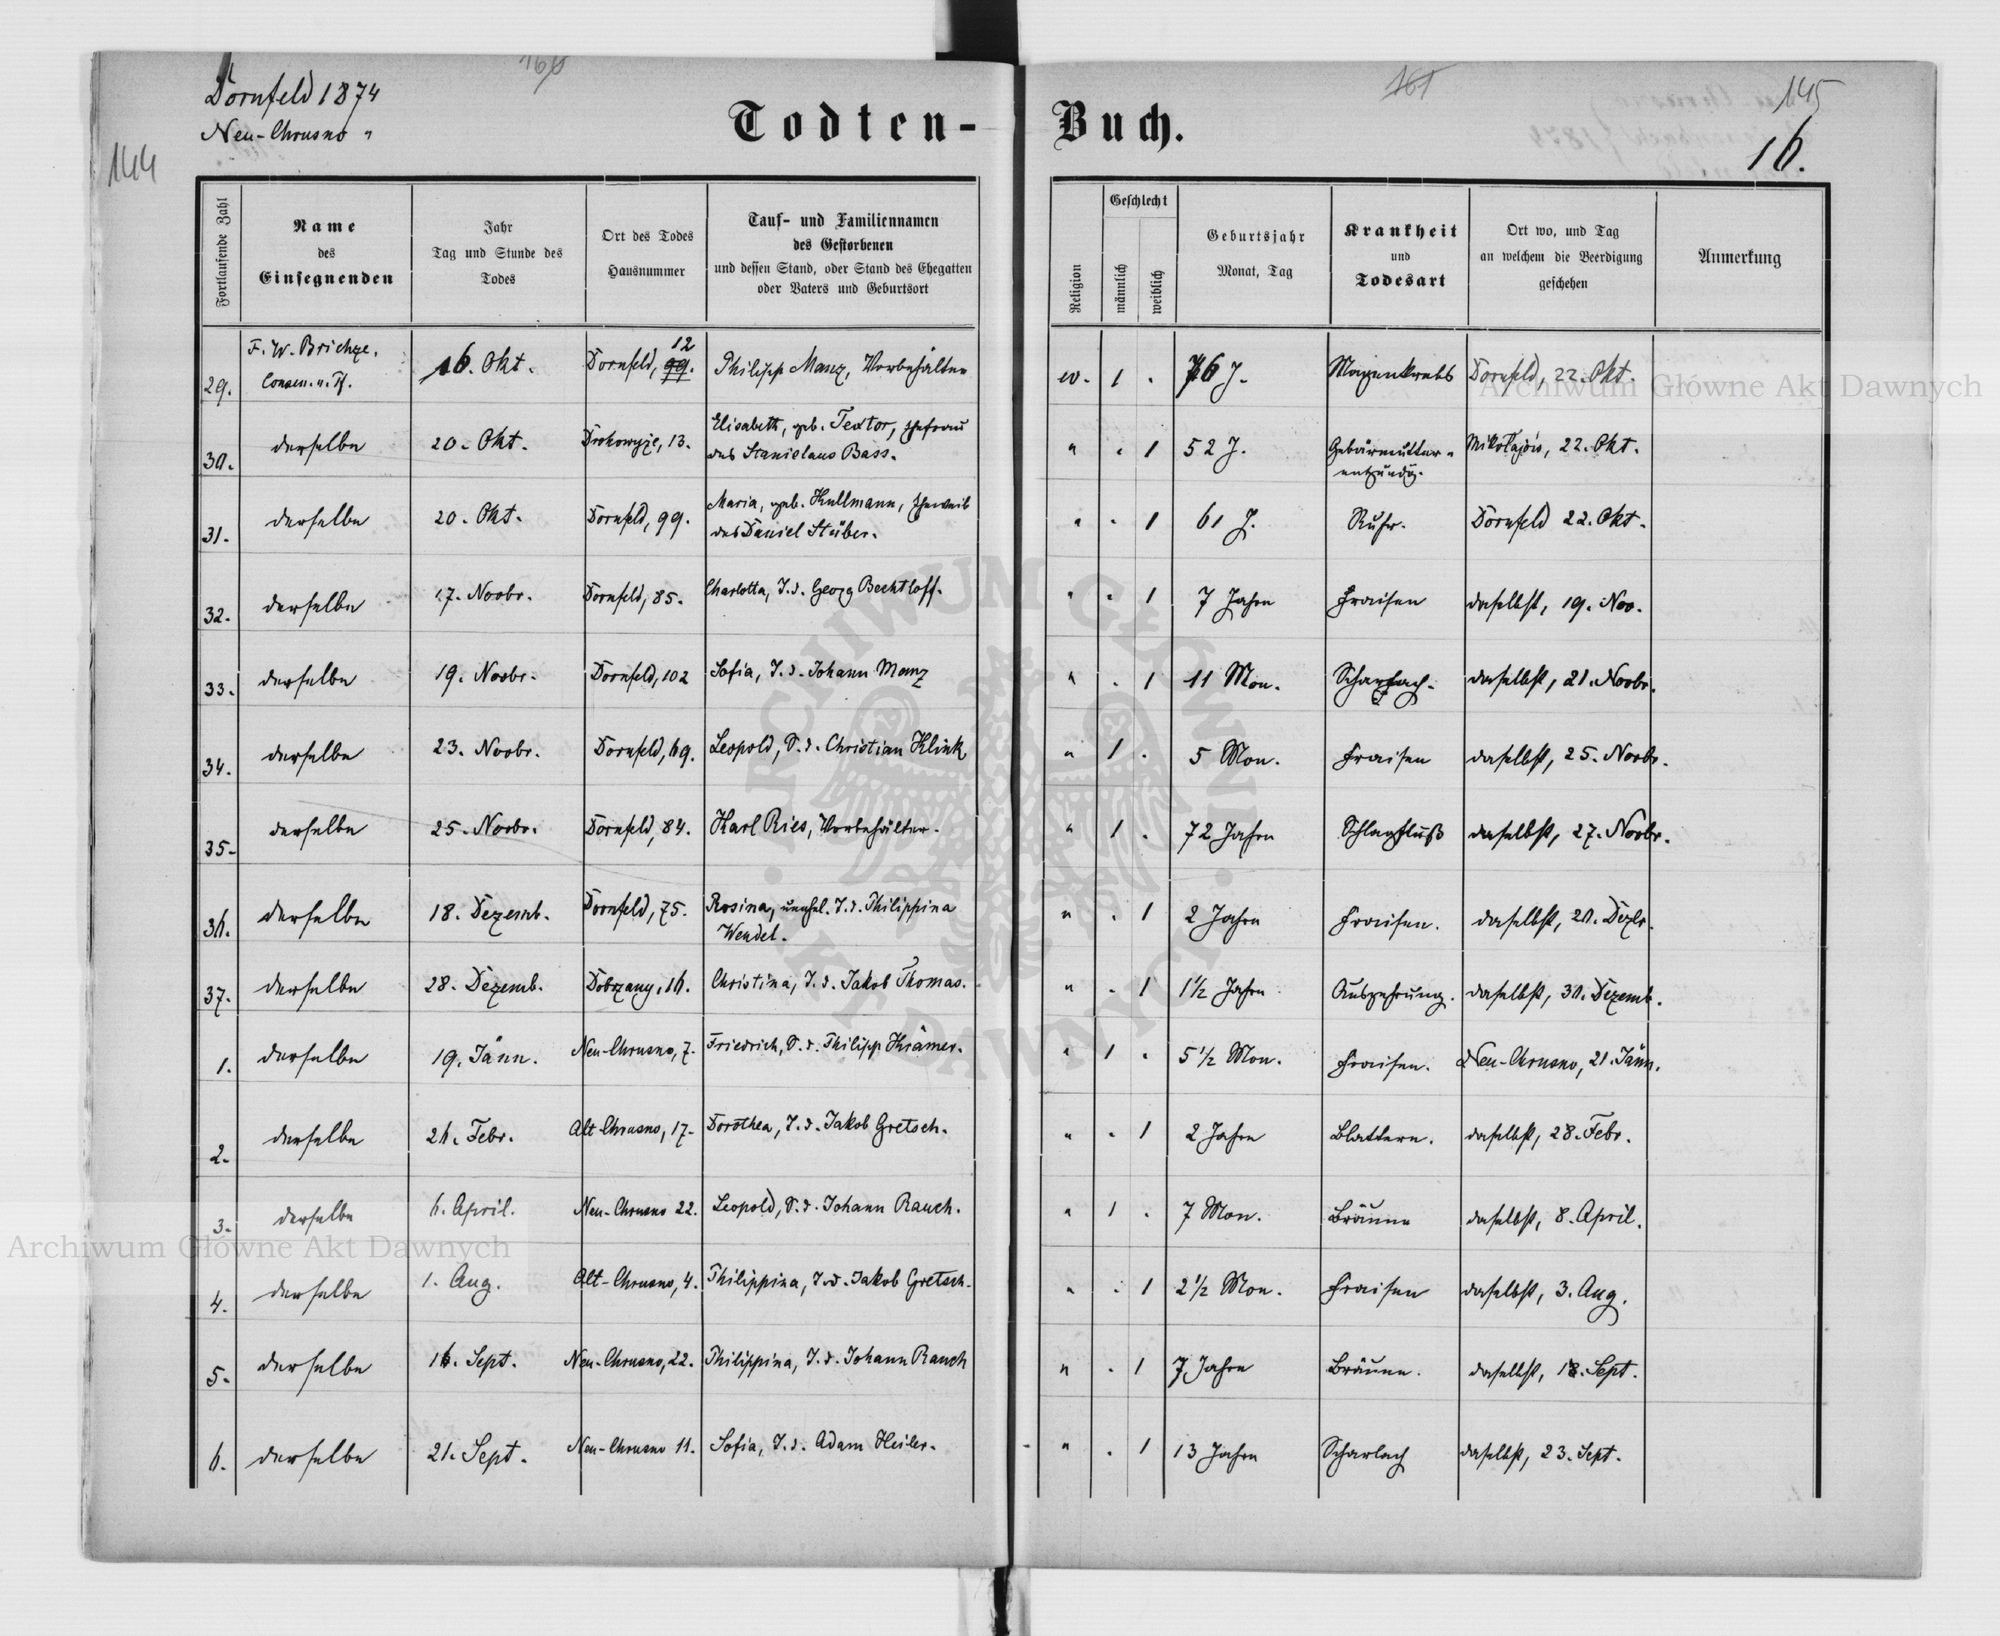 Dornfeld 1874
Neu-Chrusno "
144
160
161
145
16.
Todten-Buch.
Fortlaufende Zahl
Name
des
Einsegnenden
Jahr
Tag und Stunde des
Todes
Ort des Todes
Hausnummer
Tauf- und Familiennamen
des Gestorbenen
und dessen Stand, oder Stand des Ehegatten
oder Vaters und Geburtsort
Religion
Geschlecht
männlich
weiblich
Geburtsjahr
Monat, Tag
Krankheit
und
Todesart
Ort wo, und Tag
an welchem die Beerdigung
geschehen
Anmerkung
29. F. W. Brichze, Consen. u. Pf. 16. Okt. Dornfeld, 99. 12 Philipp Manz, Vorbehälter ev. 1 . 76 J. Magenkrebs Dornfeld, 22. Okt.
30. derselbe 20. Okt. Drohowyże, 13. Elisabeth, geb. Textor, Ehefrau des Stanislaus Bass. " . 1 52 J. Gebärmutter-entzündg. Mikołajów, 22. Okt.
31. derselbe 20. Okt. Dornfeld, 99. Maria, geb. Kullmann, Eheweib des Daniel Stüber. " . 1 61 J. Ruhr. Dornfeld 22. Okt.
32. derselbe 17. Novbr. Dornfeld, 85. Charlotta, T. d. Georg Bechtloff. " . 1 7 Jahre Fraisen daselbst, 19. Nov.
33. derselbe 19. Novbr. Dornfeld, 102 Sofia, T. d. Johann Manz " . 1 11 Mon. Scharlach. daselbst, 21. Novbr.
34. derselbe 23. Novbr. Dornfeld, 69. Leopold, S. d. Christian Klink " 1 . 5 Mon. Fraisen daselbst, 25. Novbr.
35. derselbe 25. Novbr. Dornfeld, 84. Karl Ries, Vorbehälter. " 1 . 72 Jahre Schlagfluß daselbst, 27. Novbr.
36. derselbe 18. Dezemb. Dornfeld, 75. Rosina, unehel. T. d. Philippina Wendel. " . 1 2 Jahre Fraisen. daselbst, 20. Dezbr.
37. derselbe 28. Dezemb. Dobrzany, 16. Christina, T. d. Jakob Thomas. " . 1 1½ Jahre Auszehrung. daselbst, 30. Dezemb.
1. derselbe 19. Jänn. Neu-Chrusno, 7. Friedrich, S. d. Philipp Krämer. " 1 . 5½ Mon. Fraisen. Neu-Chrusno, 21. Jänn.
2. derselbe 26. Febr. Alt Chrusno, 17. Dorothea, T. d. Jakob Gretsch. " . 1 2 Jahre Blattern. daselbst, 28. Febr.
3. derselbe 6. April. Neu-Chrusno 22. Leopold, S. d. Johann Rauch. " 1 . 7 Mon. Bräune daselbst, 8. April.
4. derselbe 1. Aug. Alt-Chrusno, 4. Philippina, T. d. Jakob Gretsch. " . 1 2½ Mon. Fraisen daselbst, 3. Aug.
5. derselbe 16. Sept. Neu-Chrusno, 22. Philippina, T. d. Johann Rauch " . 1 7 Jahre Bräune. daselbst, 18. Sept.
6. derselbe 21. Sept. Neu-Chrusno 11. Sofia, T. d. Adam Heiler. " . 1 13 Jahre Scharlach daselbst, 23. Sept.
Archiwum Główne Akt Dawnych
Archiwum Główne Akt Dawnych
ARCHIWUM GŁÓWNE AKT DAWNYCH